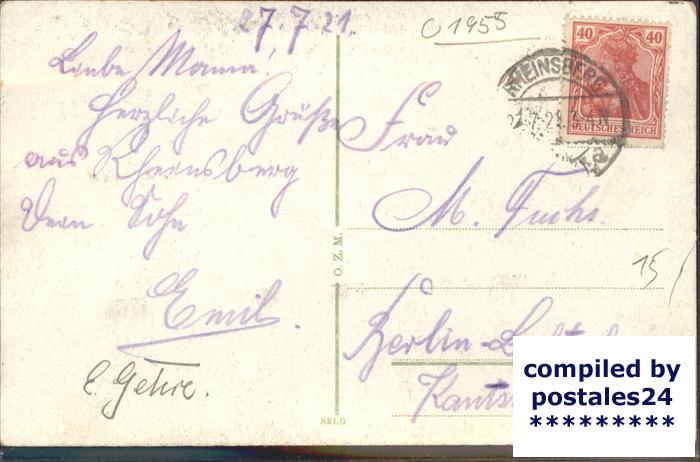 27.7.21.
C 1955
Liebe Mama!
Herzliche Grüße
aus Rheinsberg
Dein Sohn
Emil.
E. Gehre.
40 40
DEUTSCHES REICH
RHEINSBERG
7.21
Frau
M. Fuchs.
O. Z. M.
15
Berlin-
SELG
compiled by
postales24
*********